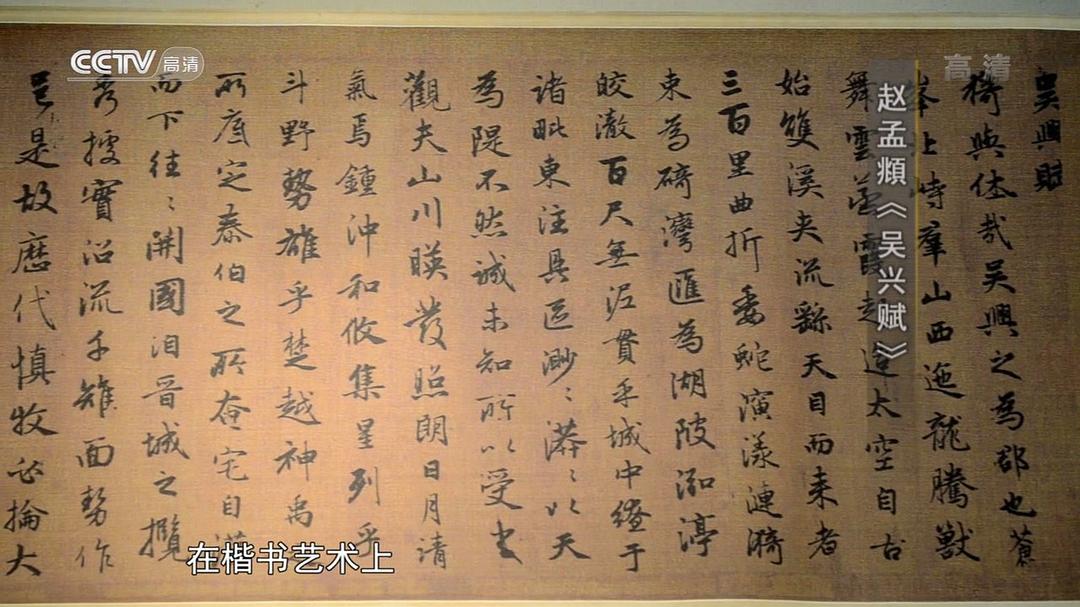 CCTV 高清
高清
赵孟頫《吴兴赋》
吳興賦
猗與佳哉吳興之為郡也蒼
峯上峙羣山西迤龍騰獸
舞雲蒸霞起造太空自古
始雙溪夾流繇天目而来者
三百里曲折委蛇演漾漣漪
東為碕灣匯為湖陂泓渟
皎澈百尺無泥貫乎城中繚于
諸毗東注具區渺〻漭〻以天
為隄不然誠未知所以受之
觀夫山川暎發照朗日月清
氣焉鍾沖和攸集星列乎
斗野勢雄乎楚越神禹
所底定泰伯之所奄宅自漢
而下往〻開國洎晉城之攬
秀據實沿流千雉面勢作
邑是故歷代慎牧必掄大
在楷书艺术上